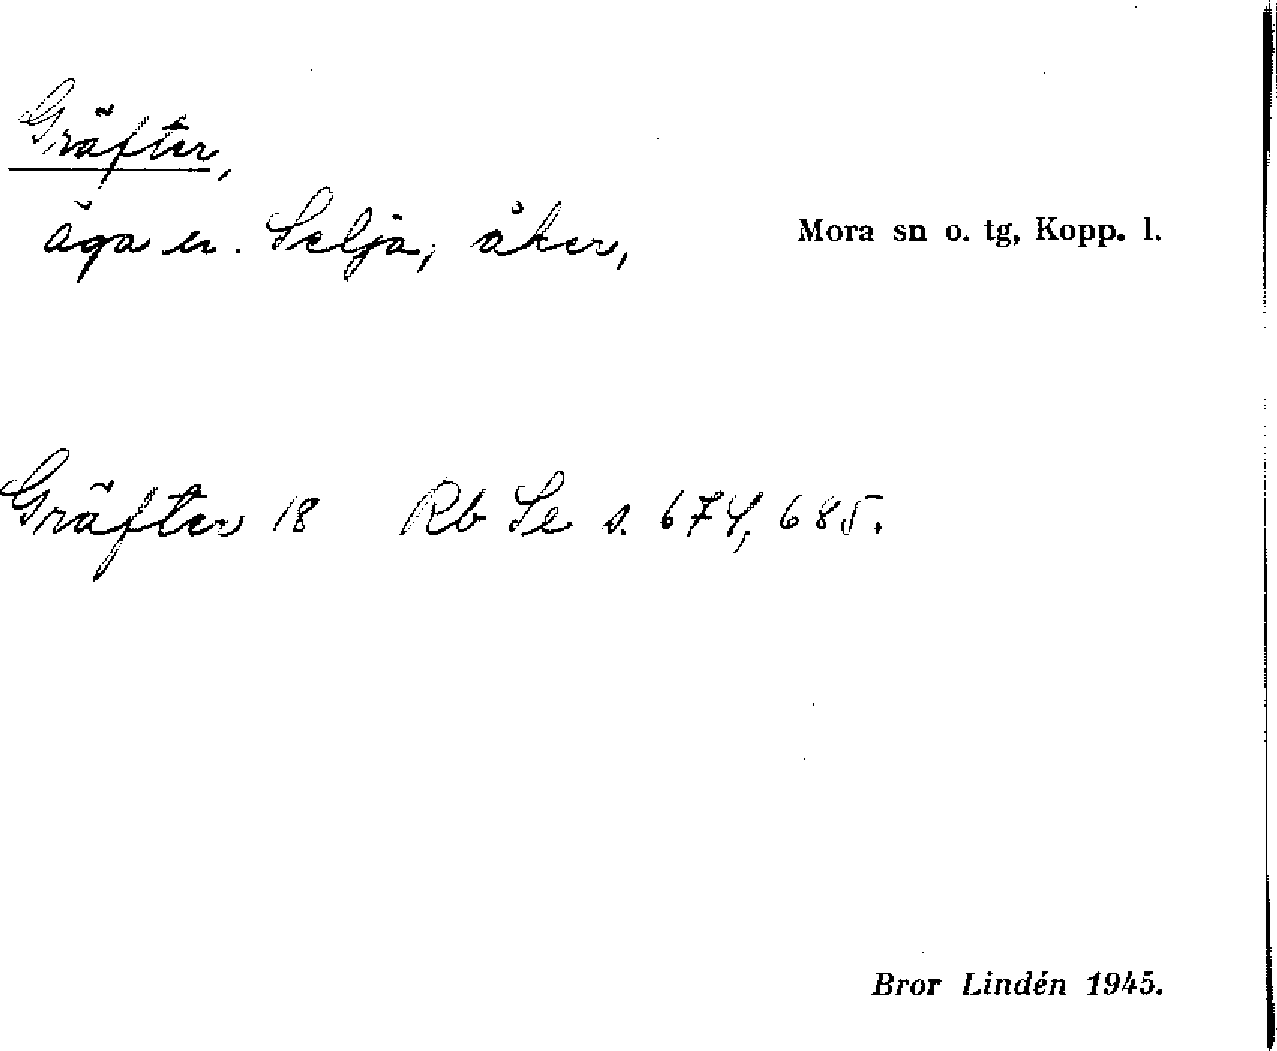 Gräfter,
äga n. Selja, åker,
Mora sn o. tg, Kopp. l.
Gräfter 18 Rb Se s. 674, 685.
Bror Lindén 1945.